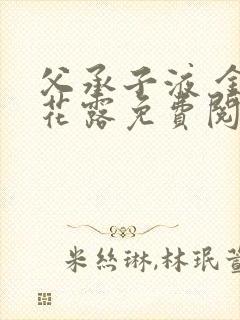 父承子液 金
花露免費閱
米丝琳,林珉萱